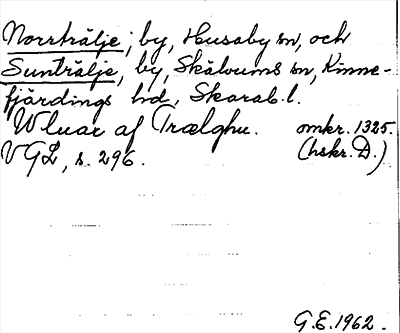 Norrträlje, by, Husaby sn, och
Sunträlje, by, Skälvums sn, Kinne-
fjärdings hd, Skarab. l.
W luar af Trælghu. omkr. 1325.
VGL, s. 296. (hskr. D.)
G.E. 1962.